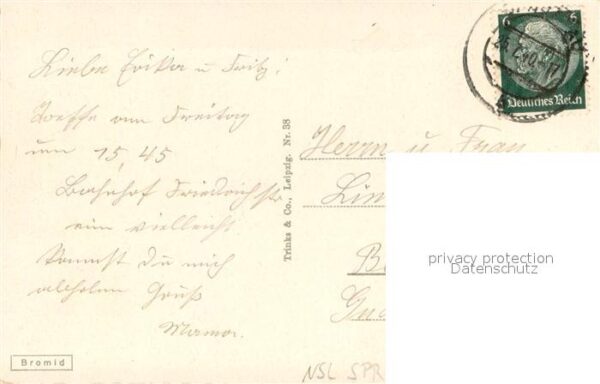 Liebe Erika u Fritz!
Treffe am Freitag
um 15,45
Bahnhof Friedrichstr
ein vielleicht
kommst Du mich
abholen Gruß
Mama.
Bromid
Trinks & Co., Leipzig. Nr. 38
6 6
Deutsches Reich
Herrn u Frau
privacy protection
Datenschutz
NSL SPR